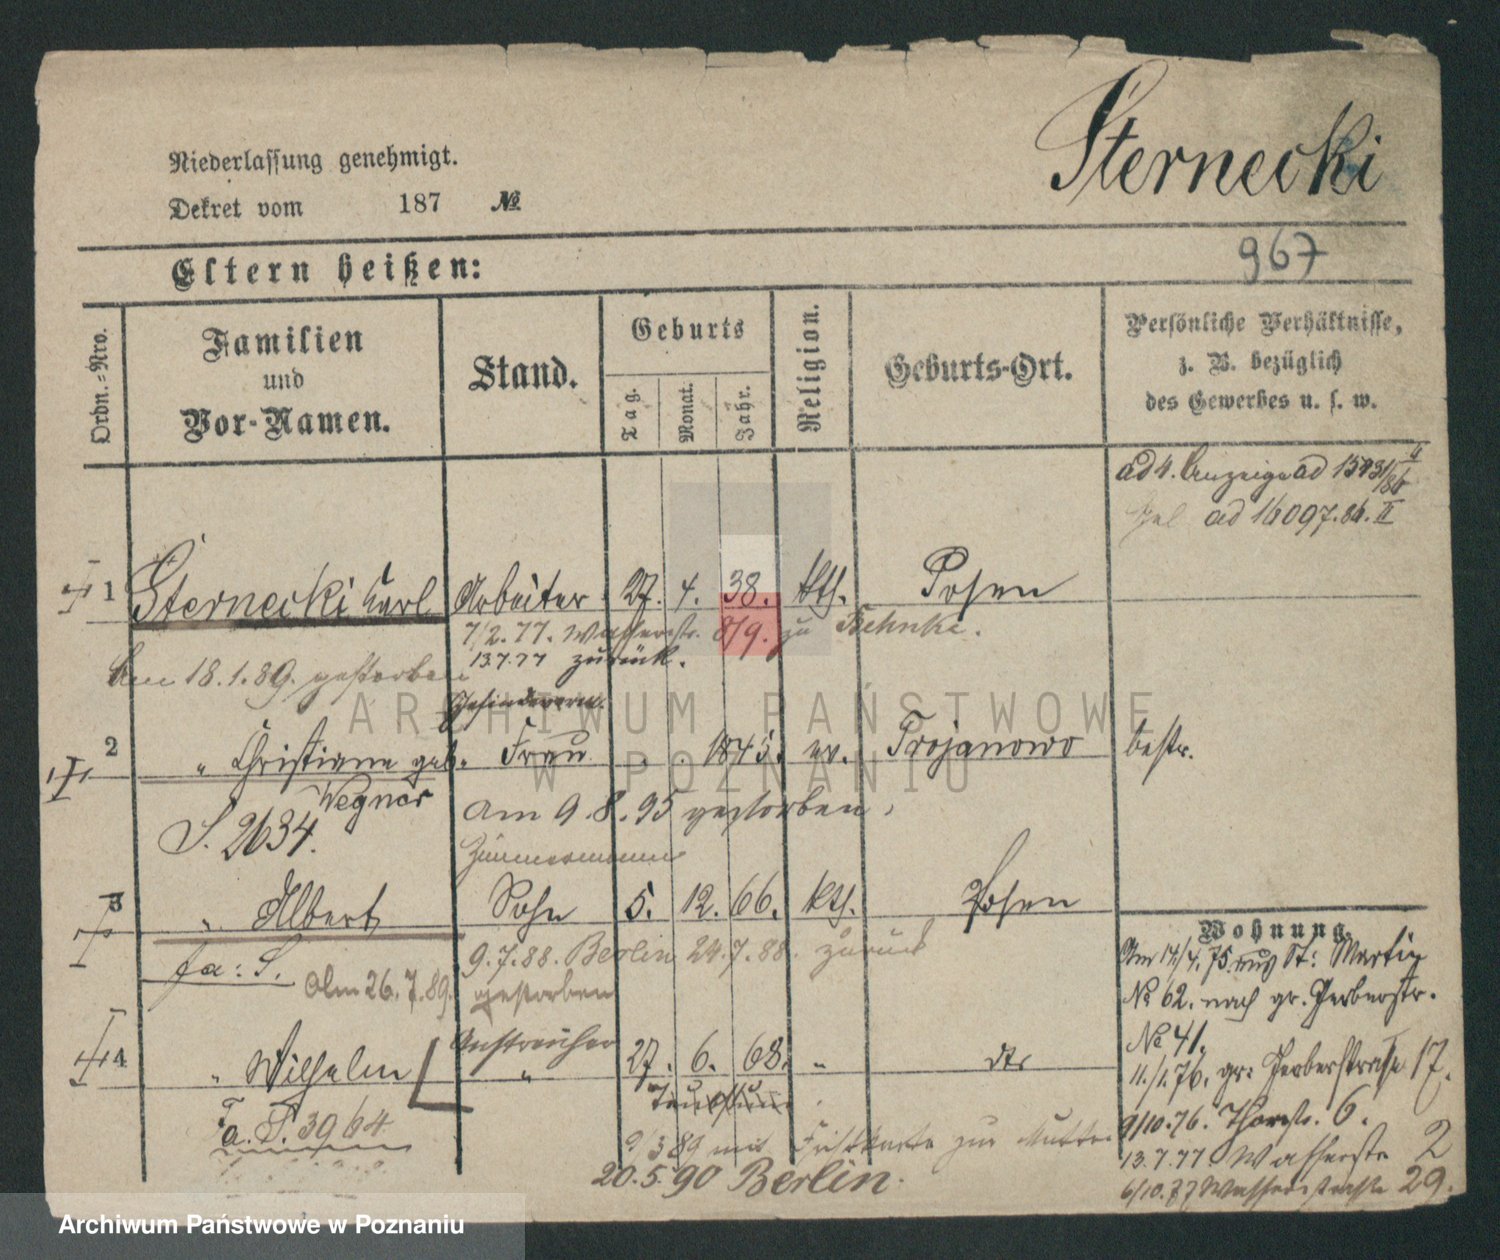 Sternecki
Niederlassung genehmigt.
Dekret vom 187 №
967
Eltern heißen:
Ordn.-Nro.
Familien
und
Vor-Namen.
Stand.
Geburts
Tag.
Monat.
Jahr.
Religion.
Geburts-Ort.
Persönliche Verhältnisse,
z. B. bezüglich
des Gewerbes u. s. w.
ad 4. Anzeige ad
ad 16097.86. II
1 Sternecki Karl Arbeiter 27. 4. 38. kth. Posen
7/2. 77. Wasserstr. 8/9. zu Behnke.
13.7.77 zurück.
Am 18.1.89. gestorben
2 " Christiane geb. Frau 1845. ev. Trojanowo bestr.
Wegner
am 9.8.95 gestorben
S. 2634.
Zimmermann
3 " Albert Sohn 5. 12. 66. kth. Posen
9.7.88. Berlin 24.7.88. zurück
fa: S. Am 26.7.89. gestorben
Anstreicher
4 " Wilhelm " 27. 6. 68. " dto
Fa. S. 3964
9/3 89 mit zur Mutter
20.5.90 Berlin.
Wohnung.
Am 14./4. 75. aus St: Martin
№ 62. nach gr. Gerberstr.
№ 41.
11./1.76. gr: Gerberstraße 17.
9/10.76. Thorstr. 6.
13.7.77. Wasserstr 2
6/10.77 Wasserstraße 29.
ARCHIWUM PAŃSTWOWE
W POZNANIU
Archiwum Państwowe w Poznaniu